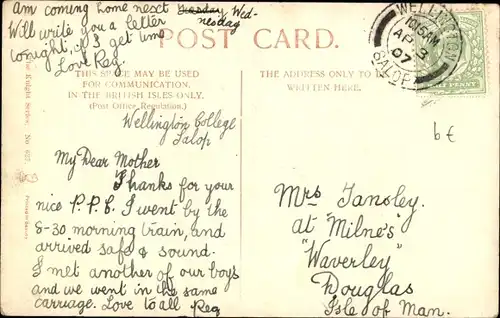 am coming home next Tuesday Wed-
nesday
Will write you a letter
tonight, if I get time
Love Reg.
POST CARD.
THIS SPACE MAY BE USED
FOR COMMUNICATION,
IN THE BRITISH ISLES ONLY.
(Post Office Regulation.)
THE ADDRESS ONLY TO BE
WRITTEN HERE.
WELLINGTON
10 15AM
AP 3
07
SALOP
Knight Series No
Wellington College
Salop
My Dear Mother
Thanks for your
nice P.P.C. I went by the
8-30 morning train, and
arrived safe & sound.
I met another of our boys
and we went in the same
carriage. Love to all Reg
6€
Mrs Tansley.
at "Milne's"
"Waverley"
Douglas
Isle of Man.